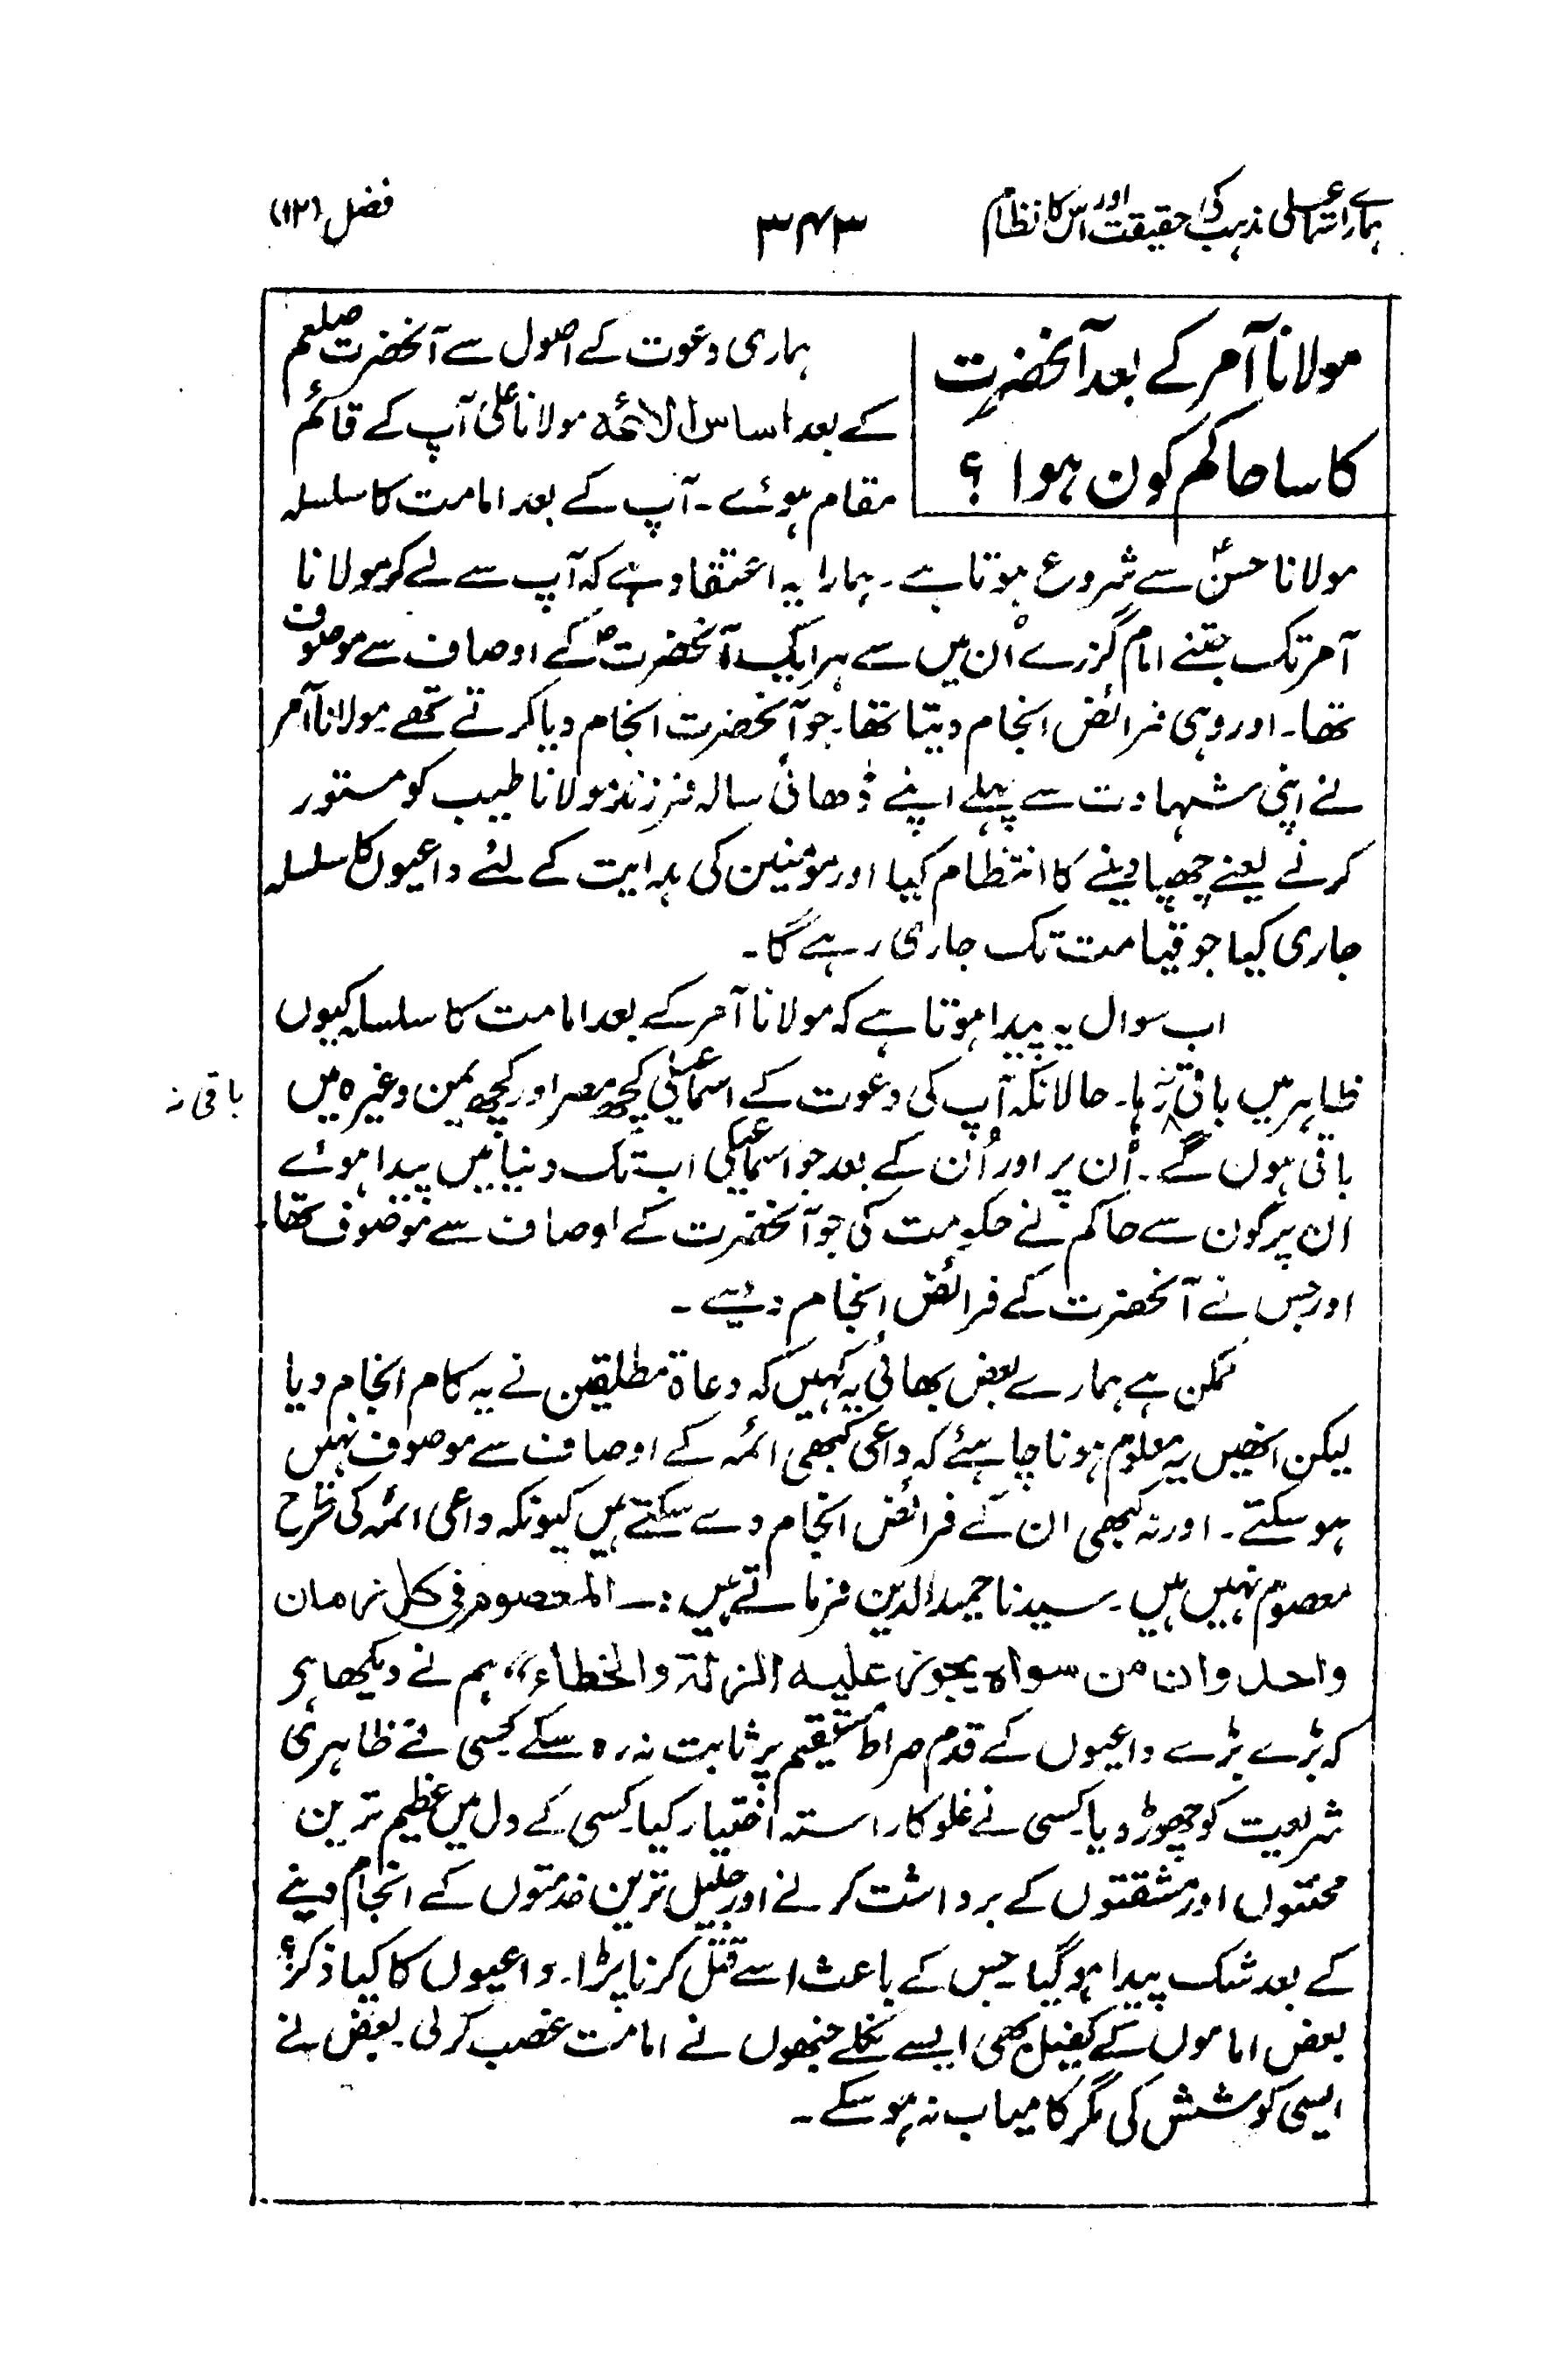 ہمارے اسماعیلی مذہب کی حقیقت اور اس کا نظام
۳۴۳
فصل (۱۲)
مولانا آمر کے بعد آنحضرت
کا سا حاکم کون ہوا ؟
ہماری دعوت کے اصول سے آنحضرت صلعم
کے بعد اساس الائمہ مولانا علی آپ کے قائم
مقام ہوئے ۔ آپ کے بعد امامت کا سلسلہ
مولانا حسنؑ سے شروع ہوتا ہے ۔ ہمارا یہ اعتقاد ہے کہ آپ سے لے کر مولانا
آمر تک جتنے امام گزرے اُن میں سے ہر ایک آنحضرتؐ کے اوصاف سے موصوف
تھا ۔ اور وہی فرائض انجام دیتا تھا ۔ جو آنحضرت انجام دیا کرتے تھے ۔ مولانا آمر
نے اپنی شہادت سے پہلے اپنے ڈھائی سالہ فرزند مولانا طیب کو مستور
کرنے یعنے چھپا دینے کا انتظام کیا اور مؤمنین کی ہدایت کے لئے داعیوں کا سلسلہ
جاری کیا جو قیامت تک جاری رہے گا ۔
اب سوال یہ پیدا ہوتا ہے کہ مولانا آمر کے بعد امامت کا سلسلہ کیوں
ظاہر میں باقی نہ رہا ۔ حالانکہ آپ کی دعوت کے اسماعیلی کچھ مصر اور کچھ یمن وغیرہ میں
باقی نہ
باقی ہوں گے ۔ اُن پر اور اُن کے بعد جو اسماعیلی اب تک دنیا میں پیدا ہوئے
ان پر کون سے حاکم نے حکومت کی جو آنحضرت کے اوصاف سے موصوف تھا ۔
اور جس نے آنحضرت کے فرائض انجام دیے ۔
ممکن ہے ہمارے بعض بھائی یہ کہیں کہ دعاۃ مطلقین نے یہ کام انجام دیا
لیکن انھیں یہ معلوم ہونا چاہئے کہ داعی کبھی ائمہ کے اوصاف سے موصوف نہیں
ہو سکتے ۔ اور نہ کبھی ان کے فرائض انجام دے سکتے ہیں کیونکہ داعی ائمہ کی طرح
معصوم نہیں ہیں ۔ سیدنا حمید الدین فرماتے ہیں :۔ المعصوم فی کل زمان
واحد وان من سواہ یجوز علیہ الزلۃ والخطاء،، ہم نے دیکھا ہی
کہ بڑے بڑے داعیوں کے قدم صراط مستقیم پر ثابت نہ رہ سکے کسی نے ظاہری
شریعت کو چھوڑ دیا ۔ کسی نے غلو کا راستہ اختیار کیا ۔ کسی کے دل میں عظیم ترین
محنتوں اور مشقتوں کے برداشت کرنے اور جلیل ترین خدمتوں کے انجام دینے
کے بعد شک پیدا ہو گیا جس کے باعث اسے قتل کرنا پڑا ۔ داعیوں کا کیا ذکر؟
بعض اماموں کے کفیل بھی ایسے نکلے جنھوں نے امامت غصب کر لی ۔ بعض نے
ایسی کوشش کی مگر کامیاب نہ ہو سکے ۔